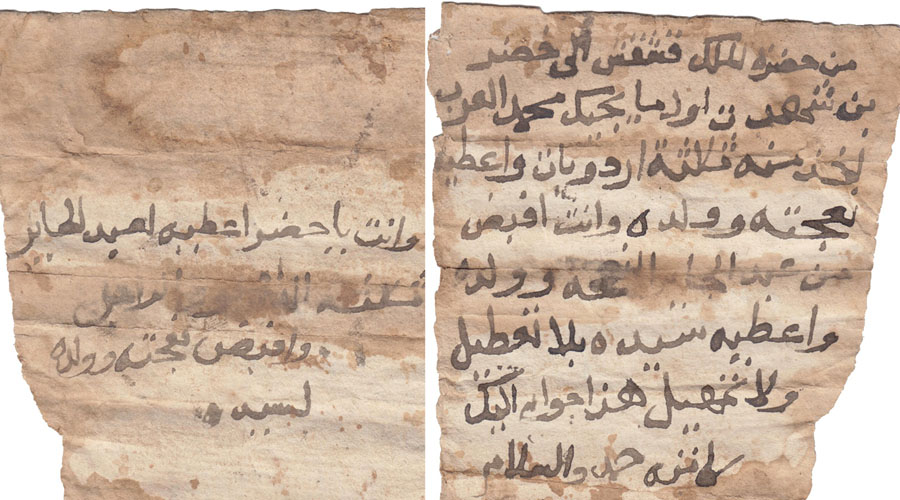 من حضرة الملك قشقش الى خضر
بن شهدت اول ما يجيك محمد العرب
تخذ منه ثلاثة اردويات واعطيه
نعجته وولده وانت اقبض
من عبد الجابر النعجة وولده
واعطيه سيده بلا تعطيل
ولا تمهيل هذا جوابه اليك
والسلام
وانت يا خضر اعطيه لعبد الجابر
ثلثه
واقبض نعجته وولده
لسيده